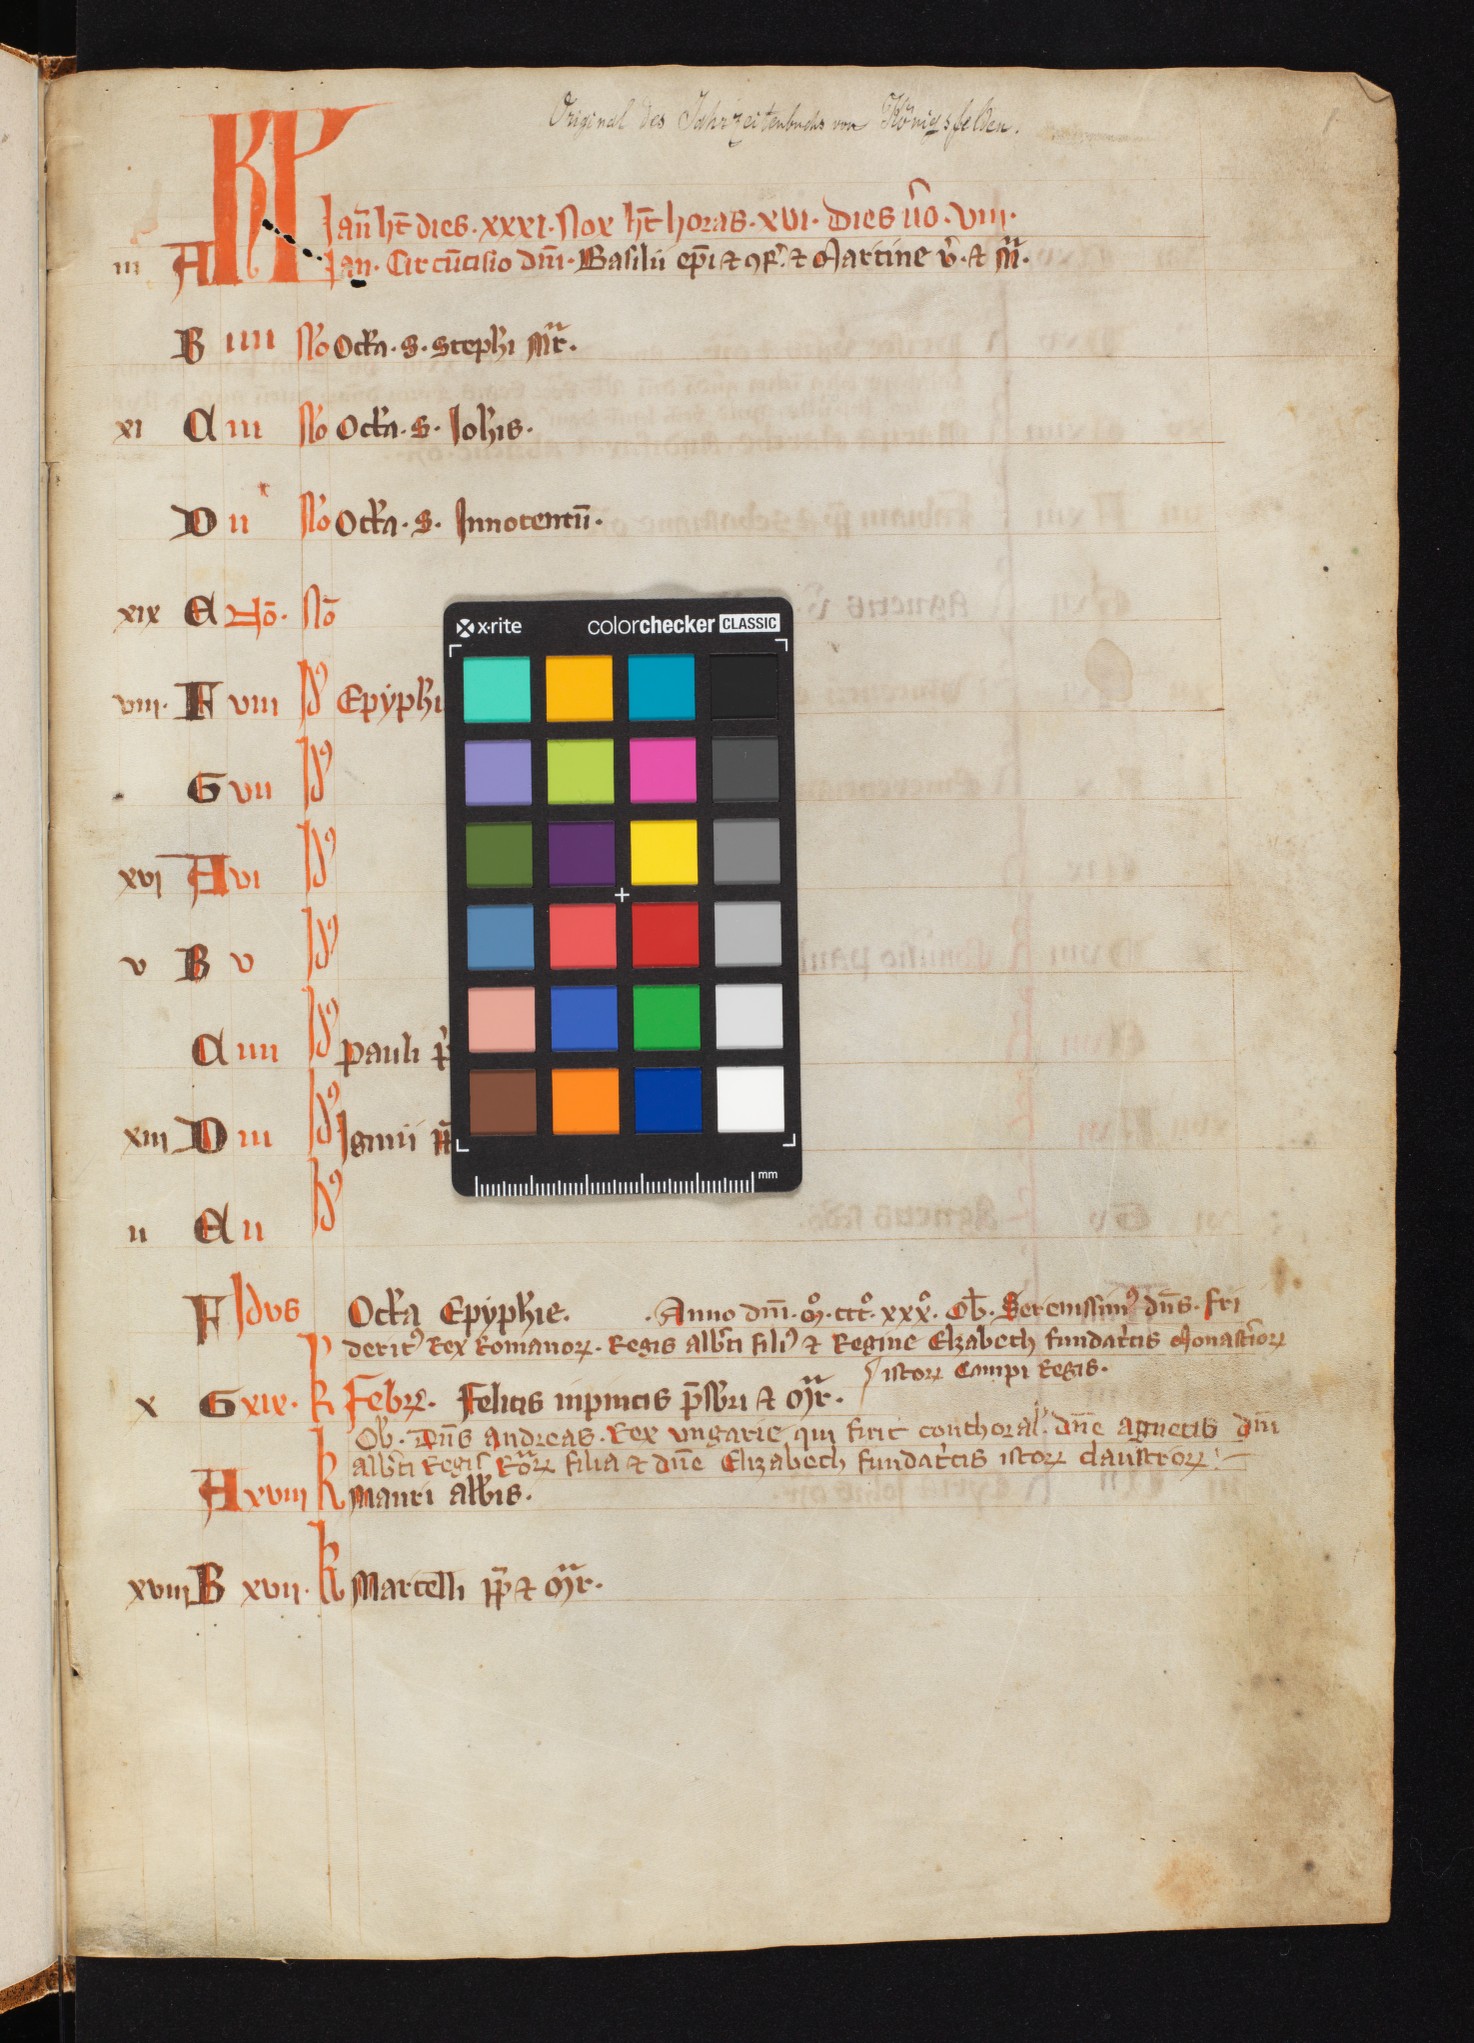 Original des Jahrzeitenbuchs von Königsfelden.
KL
Ianͬ hт̄ dies · xxxi · Nox hт̄ horas · xvi · Dies v̄o · viii ·
iii A Ian · Circūcisio dn̄i · Basilii ep̄i ⁊ ꝯf̄ · ⁊ Martine v̄ · ⁊ mr̄ ·
B iiii No Octa · s · stephi Mr̄ ·
xi C iii No Octa · s · Iohis ·
D ii No Octa · s · Innocentū ·
xix E No̅ · No̅
viii · F viii Idꝰ Epyphi
G vii Idꝰ
xvi A vi Idꝰ
v B v Idꝰ
C iiii Idꝰ pauli p̄
xiii D iii Idꝰ Iginii pp̄
ii E ii Idꝰ
F Idus Octa Epyphie. · Anno dn̄i · m̊ · ccc̊ · xxx̊ · Ob̄ · Serenissimꝰ dn̄s · fri
dericꝰ Rex Romanoꝝ · Regis alb̄ti filiꝰ ⁊ Regine Elzabech fundatͥcis Monast̄ioꝝ
istoꝝ Campi Regis ·
x G xix · K Febrͬ · Felicis inpincis p̄sbri ⁊ Mr̄ ·
Ob̄ · Dn̄s andreas · Rex vngarie qui fuit conthoral' dn̄e agnetis dn̄i
alb̄ti Regis Ro̅ꝝ filia ⁊ dn̄e Elizabech fundatͥcis istoꝝ claustroꝝ
A xviii K Mauri abbis ·
xviii B xvii · K Marcelli pp̄ ⁊ Mr̄ ·
x·rite colorchecker CLASSIC
mm